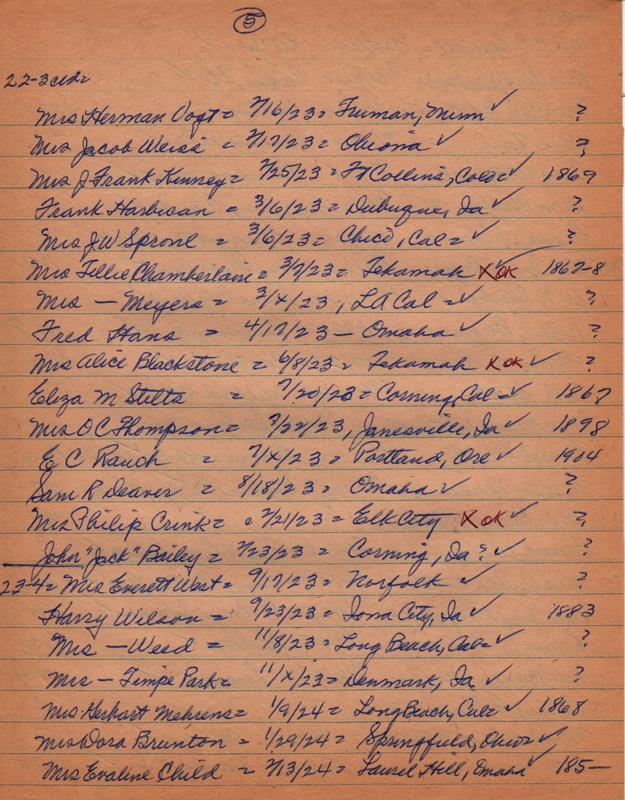 5
22-3 cld=
Mrs Herman Vogt = 2/16/23 = Truman, Minn ✓ ?
Mrs Jacob Weiss 2/17/23 = ✓ ?
Mrs J Frank Kenney = 2/25/23 = Ft Collins, Colo = ✓ 1869
Frank Harbican = 3/6/23 = Dubuque, Ia ✓ ?
Mrs JW = 3/6/23 = Chico, Cal = ✓ ?
Mrs Tillie Chamberlain = 3/7/23 = Tekamah X OK ✓ 1867-8
Mrs — Meyers = 3/x/23, LA Cal = ✓ ?
Fred Hans = 4/17/23 — Omaha ✓ ?
Mrs Alice Blackstone = 6/8/23 = Tekamah X OK ✓ ?
Eliza M Stilts = 7/20/23 = Corning, Cal = ✓ 1867
Mrs OC Thompson = 7/22/23, Janesville, Ia ✓ 1898
E C Rauch = 7/x/23 = Portland, Ore ✓ 1904
Sam R Deaver = 8/18/23 = Omaha ✓ ?
Mrs Philip Crink = = 2/21/23 = Elk City X OK ✓ ?
John "Jack" Bailey = /23/23 = Corning, Ia ? ✓ ?
23-4 = Mrs Everett West = 9/17/23 = Norfolk ✓ ?
Harry Wilson = 9/23/23 = Iowa City, Ia ✓ 1883
Mrs — Weed = 11/8/23 = Long Beach, Cal = ✓ ?
Mrs — Timpe Park = 11/x/23 = Denmark, Ia ✓ ?
Mrs Herhart Mehrens = 1/9/24 = Long Beach, Cal = ✓ 1868
Mrs Dora Brunton = 1/29/24 = Springfield, Ohio = ✓ ?
Mrs Evaline Child = 2/13/24 = Laurel Hill, Omaha ✓ 185—